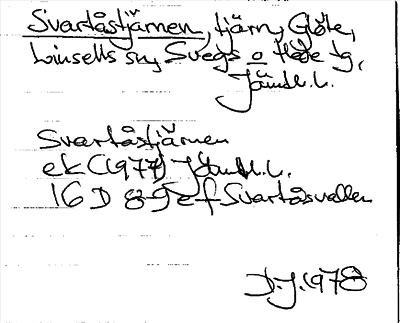 Svartåstjärnen, tjärn, Glöte,
Linsells sn, Svegs o Hede tg,
Jämtl. l.
Svartåstjärnen
ek (1977) Jämtl. l.
16 D 8-9 e f Svartåsvallen
D.J. 1978